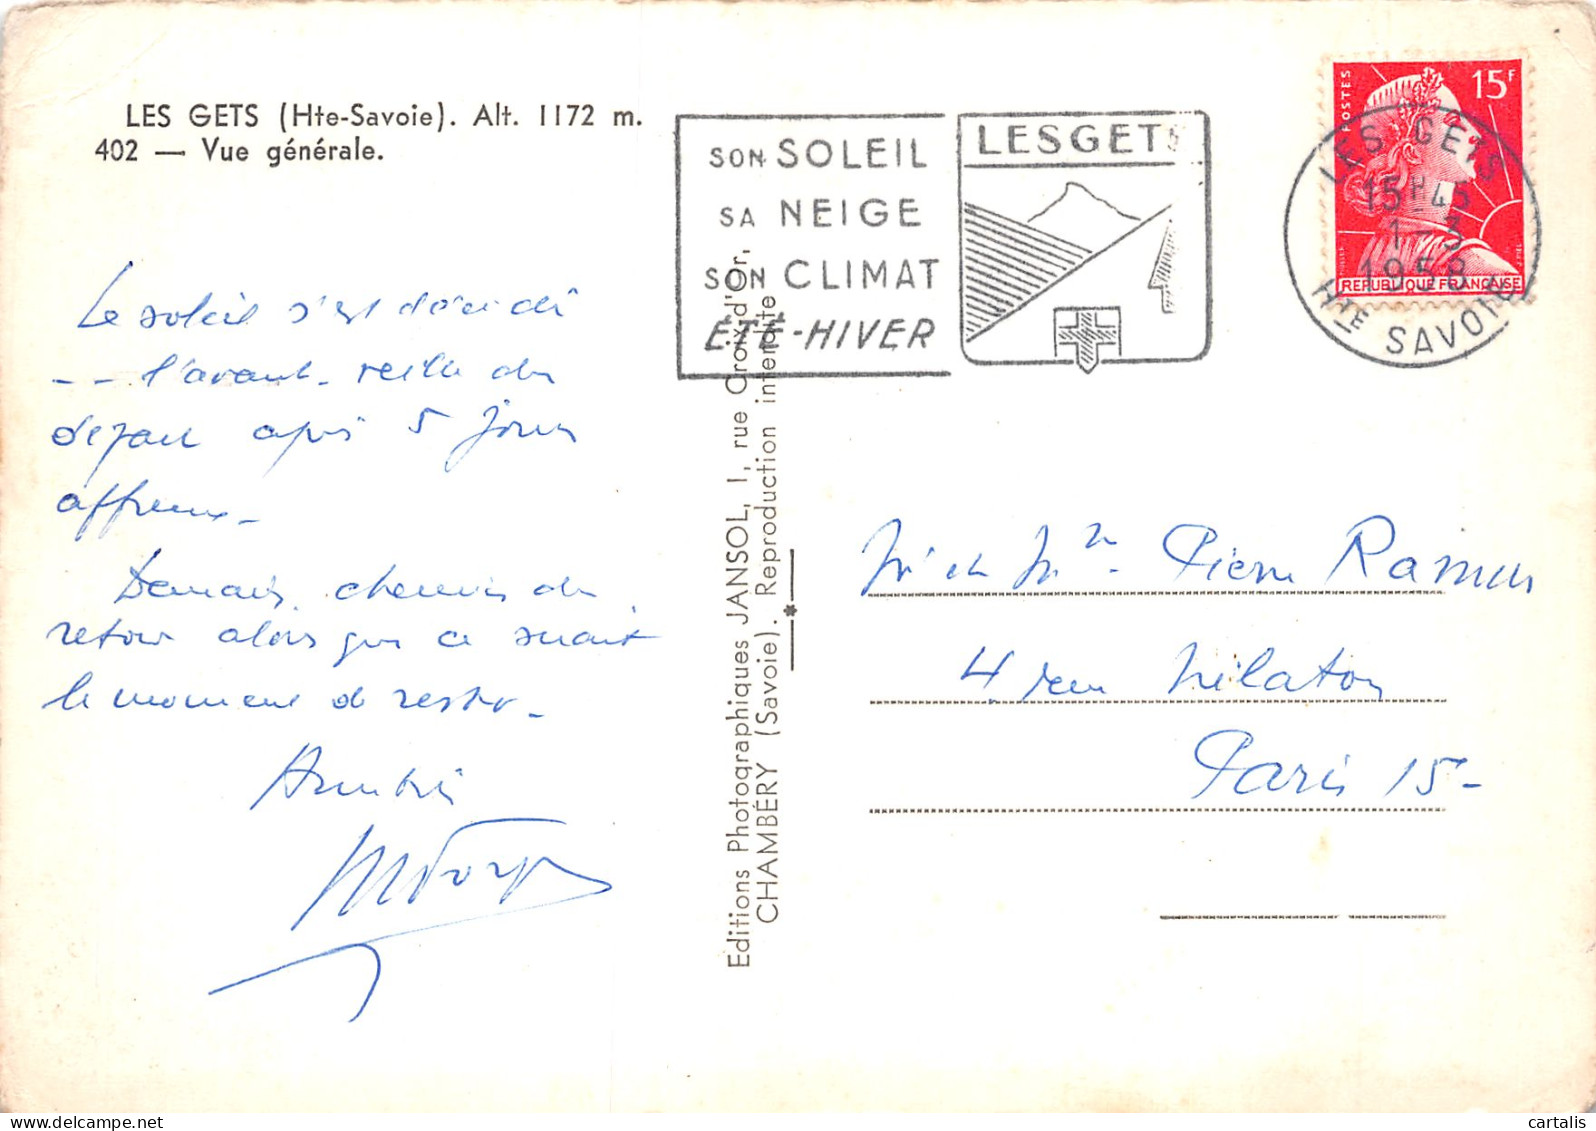 LES GETS (Hte-Savoie). Alt. 1172 m.
402 — Vue générale.
SON SOLEIL
SA NEIGE
SON CLIMAT
ÉTÉ-HIVER
LES GETS
POSTES
15F
REPUBLIQUE FRANÇAISE
LES GETS
15H45
1-3
1958
HTE SAVOIE
Le soleil s'est décidé
-- l'avant-veille du
départ après 5 jours
affreux -
Demain, chemin du
retour alors que ce serait
le moment de rester -
Editions Photographiques JANSOL, 1, rue Croix d'Or,
CHAMBÉRY (Savoie). Reproduction interdite
Mr et Mme Pierre Ramus
4 rue Nélaton
Paris 15-
cartalis
delcampe.net